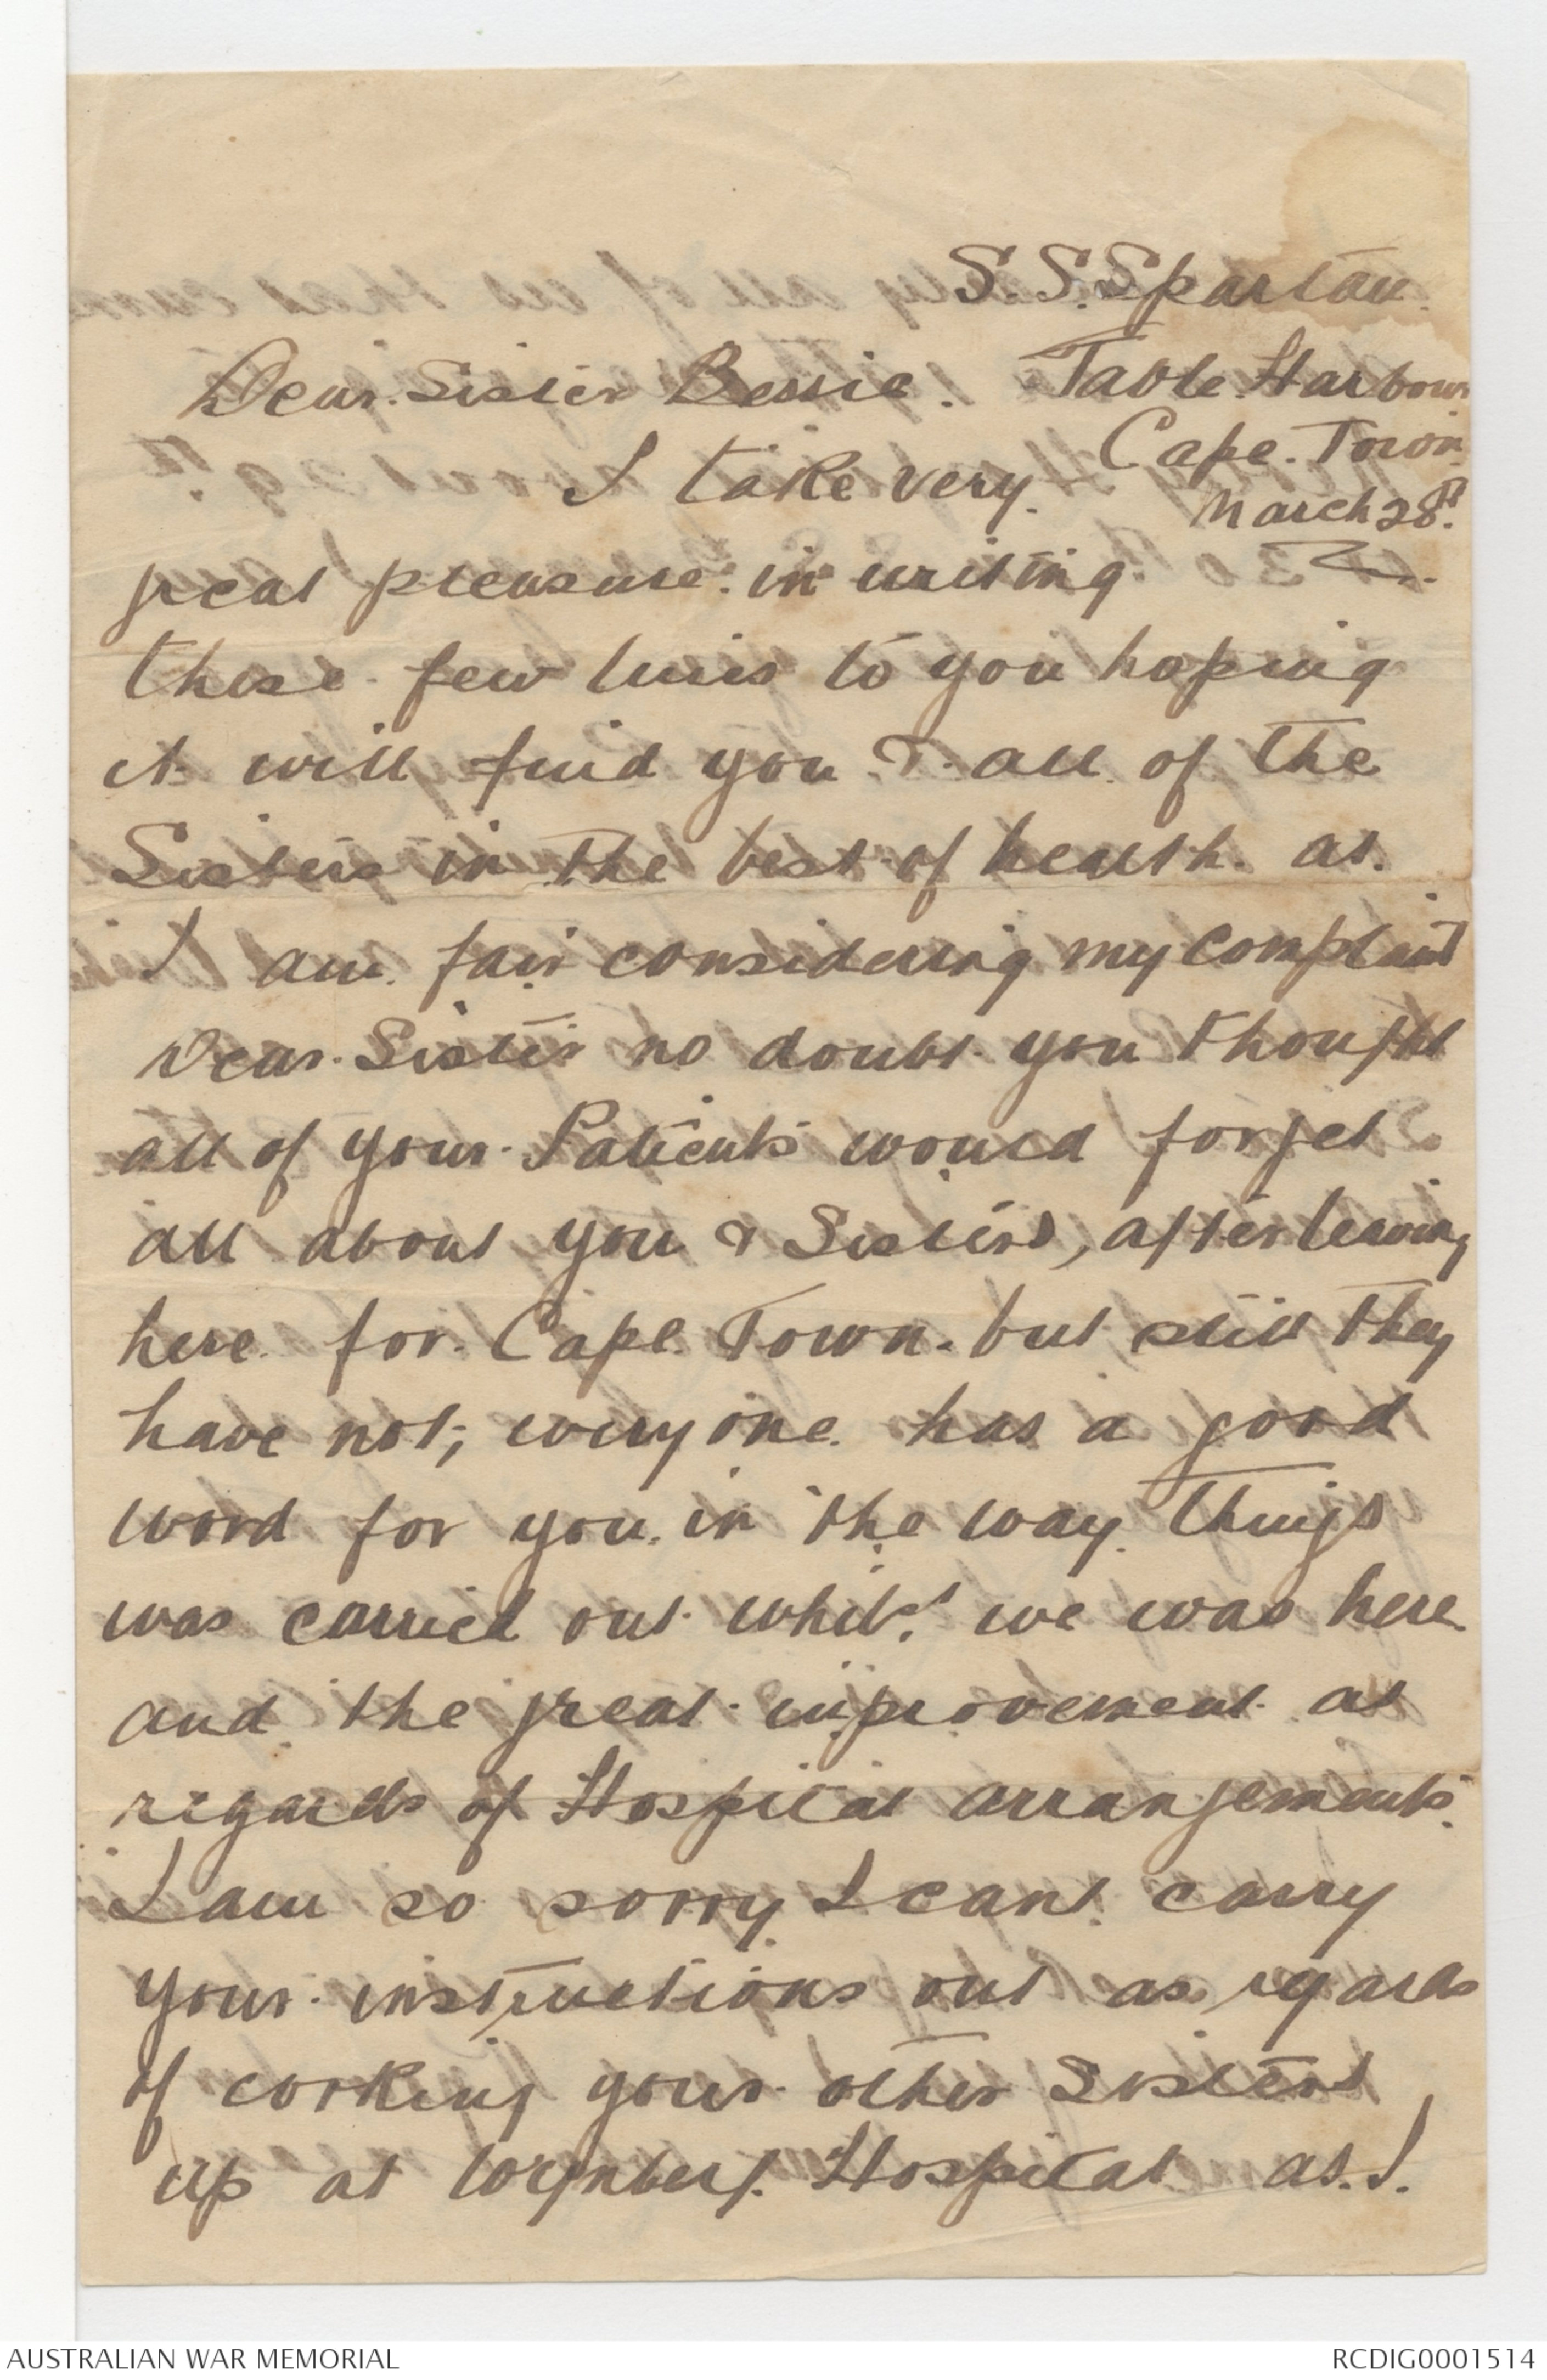 S. S. Spartan.
Dear. Sister Bessie. Table. Harbour
Cape. Town.
I take very.
March 28th.
great pleasure. in writing
these few lines to you hoping
it will find you & all of the
Sisters in the best of health. as.
I am fair considering my complaint
Dear. Sister no doubt you thought
all of your Patients would forget
all about you & Sisters, after leaving
here for Cape Town. but still they
have not; everyone has a good
word for you in the way things
was carried out whilst we was here.
and the great improvement as
regards of Hospital arrangements.
I am so sorry I cant carry
your instructions out as regards
of looking your other Sisters
up at Wynberg. Hospital as. I.
AUSTRALIAN WAR MEMORIAL
RCDIG0001514